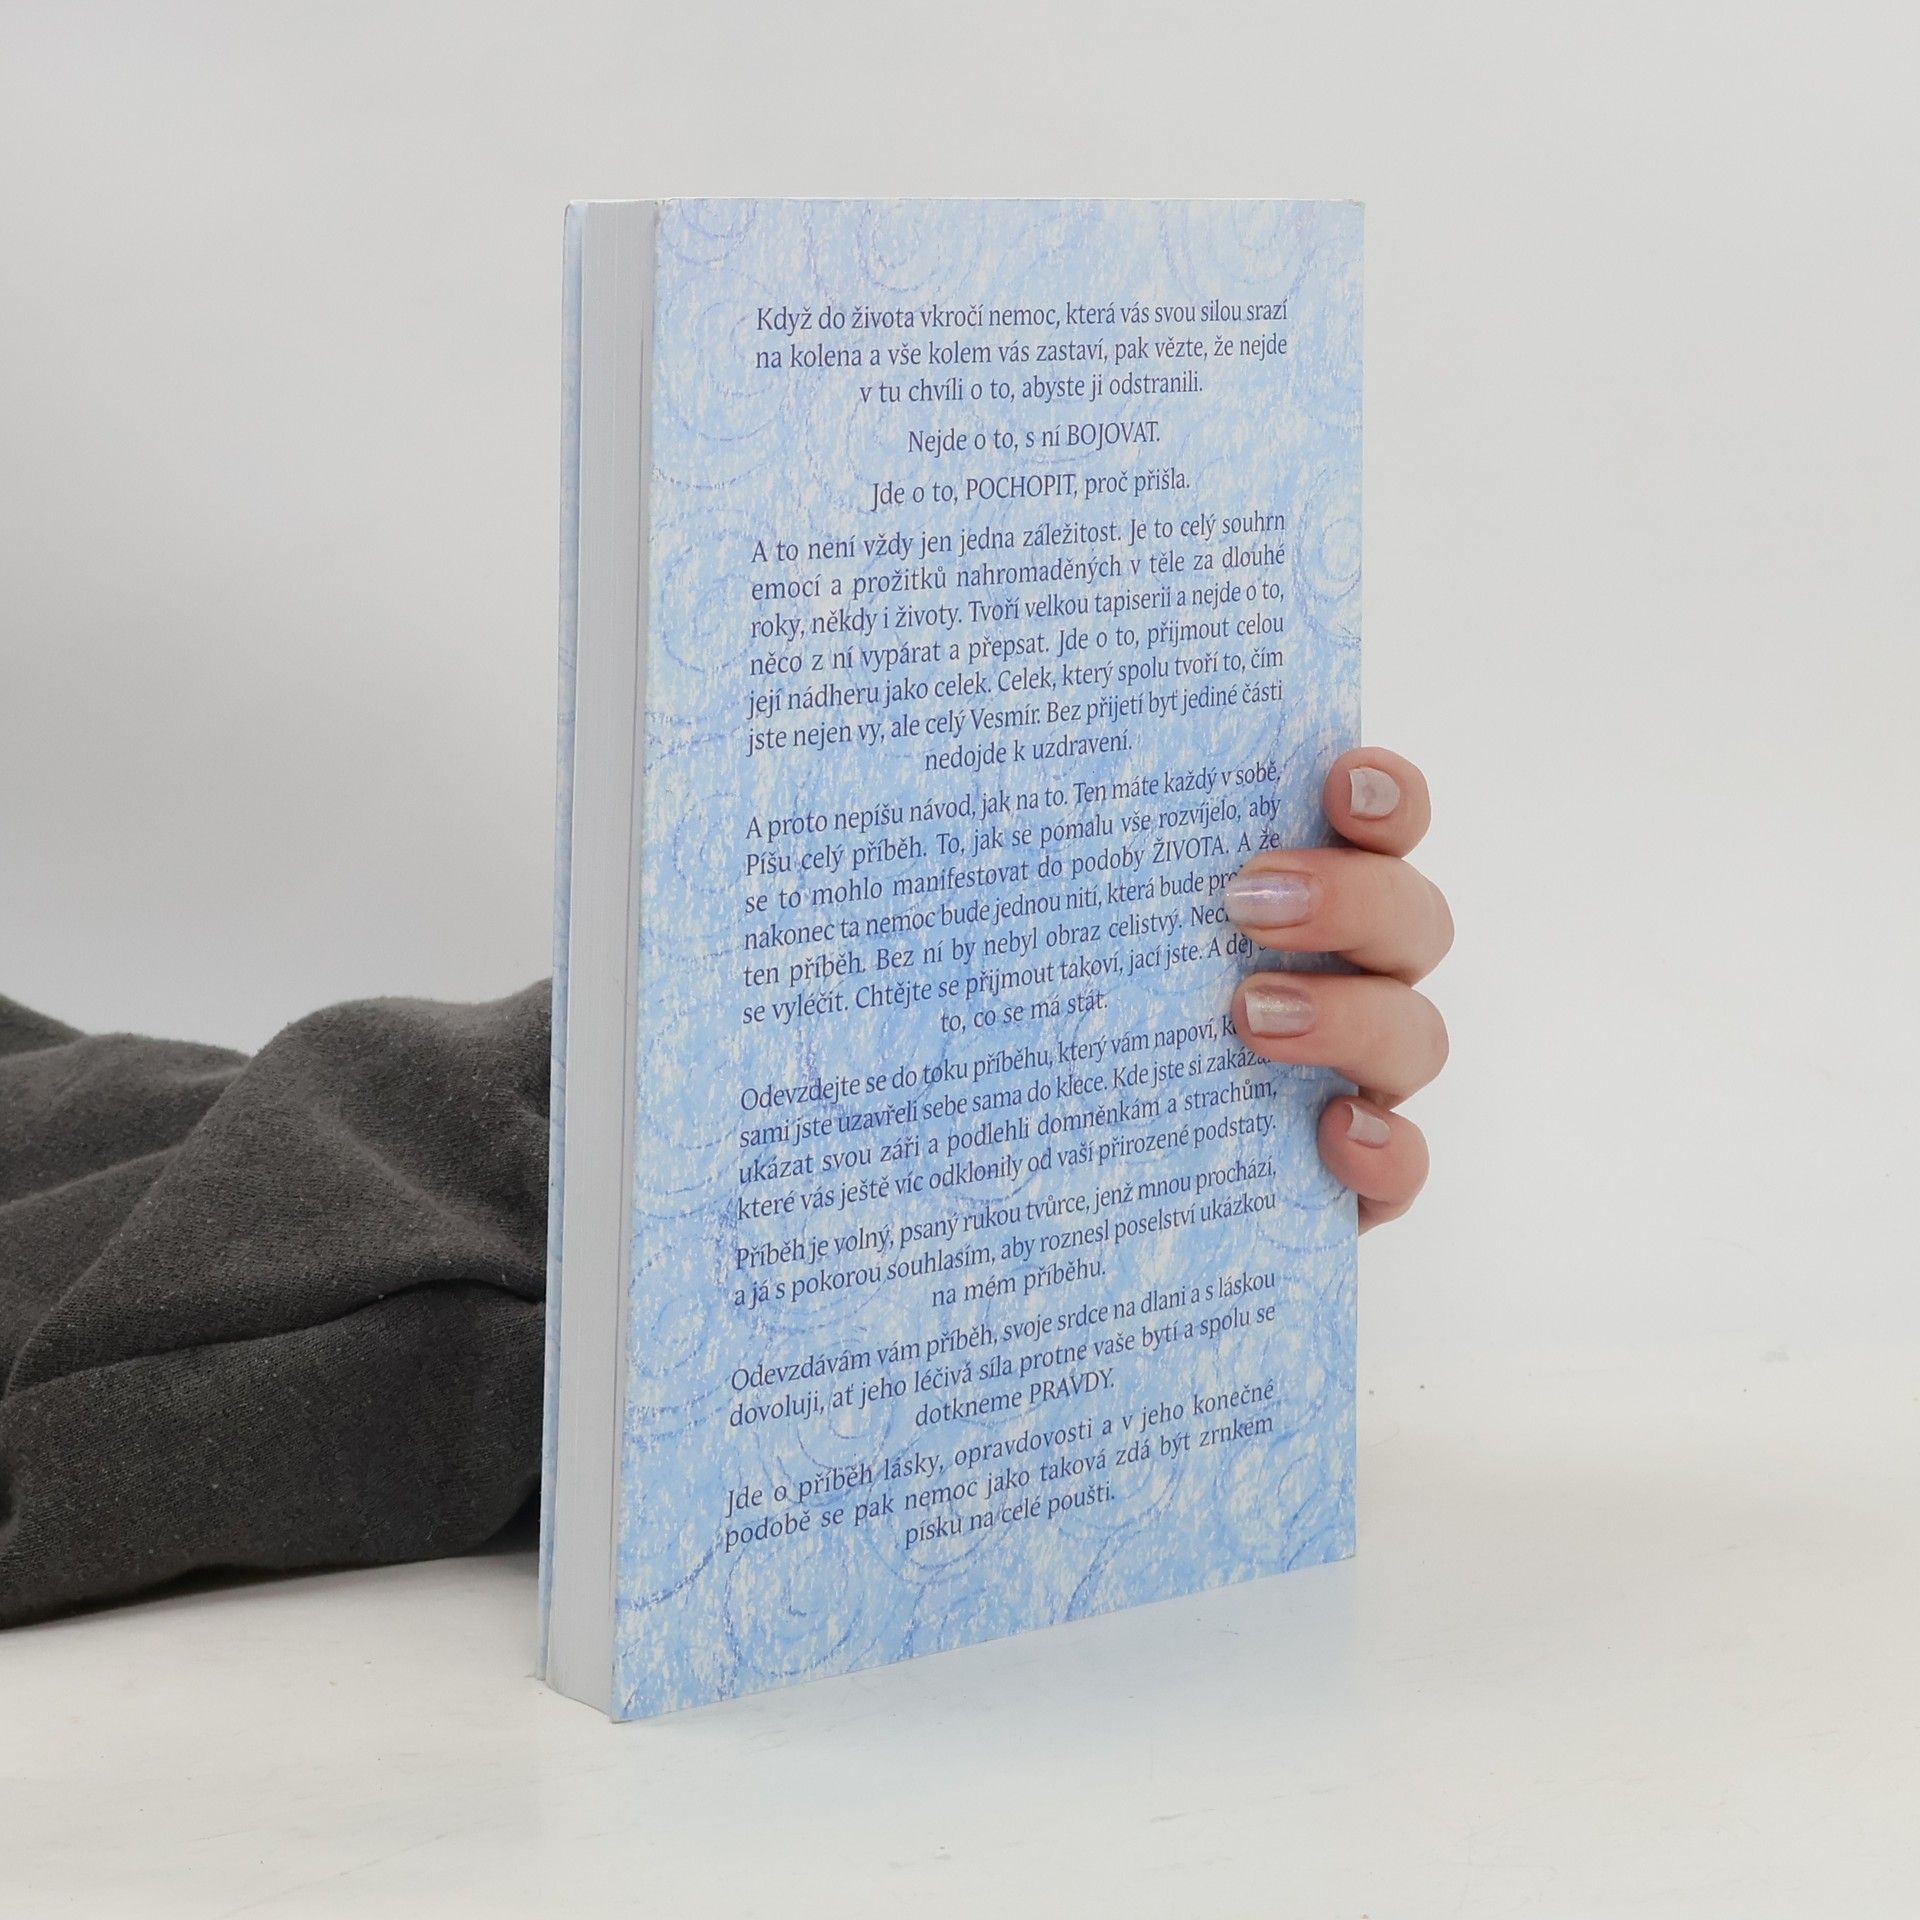 Když do života vkročí nemoc, která vás svou silou srazí
na kolena a vše kolem vás zastaví, pak vězte, že nejde
v tu chvíli o to, abyste ji odstranili.
Nejde o to, s ní BOJOVAT.
Jde o to, POCHOPIT, proč přišla.
A to není vždy jen jedna záležitost. Je to celý souhrn
emocí a prožitků nahromaděných v těle za dlouhé
roky, někdy i životy. Tvoří velkou tapiserii a nejde o to,
něco z ní vypárat a přepsat. Jde o to, přijmout celou
její nádheru jako celek. Celek, který spolu tvoří to, čím
jste nejen vy, ale celý Vesmír. Bez přijetí byť jediné části
nedojde k uzdravení.
A proto nepíšu návod, jak na to. Ten máte každý v sobě.
Píšu celý příběh. To, jak se pomalu vše rozvíjelo, aby
se to mohlo manifestovat do podoby ŽIVOTA. A že
nakonec ta nemoc bude jednou nití, která bude
ten příběh. Bez ní by nebyl obraz celistvý.
se vyléčit. Chtějte se přijmout takoví, jací jste. A děj
to, co se má stát.
Odevzdejte se do toku příběhu, který vám napoví,
sami jste uzavřeli sebe sama do klece. Kde jste si
ukázat svou záři a podlehli domněnkám a strachům,
které vás ještě víc odklonily od vaší přirozené podstaty.
Příběh je volný, psaný rukou tvůrce, jenž mnou prochází,
a já s pokorou souhlasím, aby roznesl poselství ukázkou
na mém příběhu.
Odevzdávám vám příběh, svoje srdce na dlani a s láskou
dovoluji, ať jeho léčivá síla protne vaše bytí a spolu se
dotkneme PRAVDY.
Jde o příběh lásky, opravdovosti a v jeho konečné
podobě se pak nemoc jako taková zdá být zrnkem
písku na celé poušti.